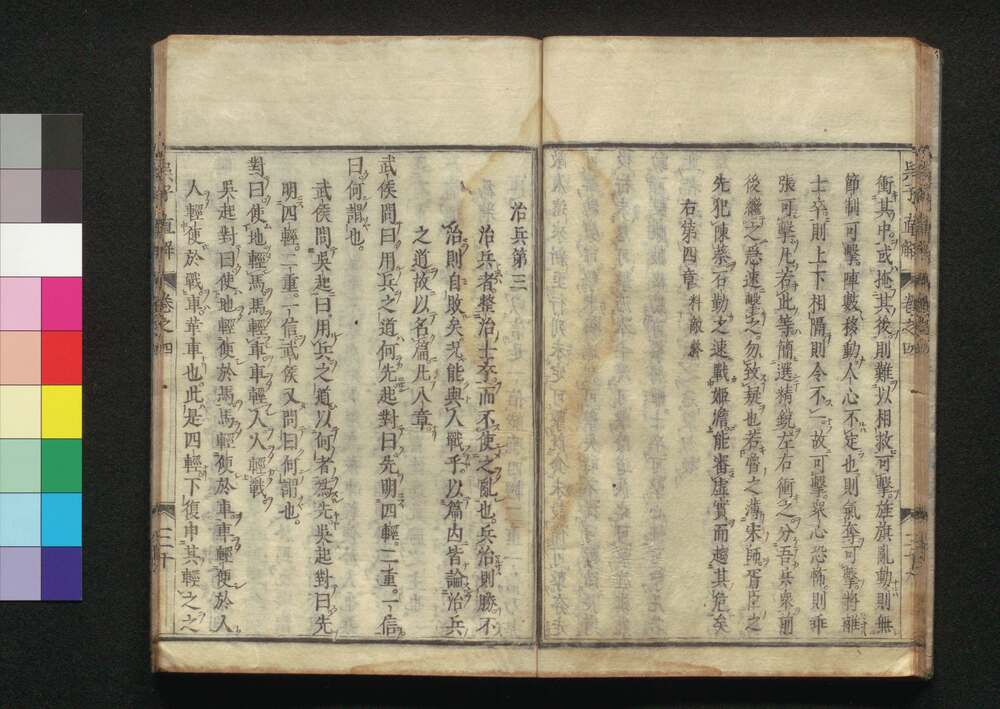 衝其中或掩其後則難以相救可擊旌旗亂動則無
節制可擊陣數移動人心不定也則氣奪可擊將離
士卒則上下相隔則令不一故可擊衆心恐怖則乖
張可擊凡若此等簡選精銳左右衝之分吾兵衆前
後繼之急速擊之勿致疑也若晉之薄宋師胥臣之
先犯陳蔡石勒之速戰姬澹能審虛實而趨其危矣
右第四章 料敵終
治兵第三
治兵者整治士卒而不使之亂也兵治則勝不
治則自敗矣尤能與人戰乎以篇内皆論治兵
之道故以名篇凡八章
武侯問曰用兵之道何先起對曰先明四輕二重一信
曰何謂也
武侯問吳起曰用兵之道以何者爲先吳起對曰先
明四輕二重一信武侯又問曰何謂也
對曰使地輕馬馬輕車車輕人人輕戰
吳起對曰使地輕便於馬馬輕便於車車輕便於人
人輕便於戰車革車也此是四輕下復申其輕之之
吳子直解 卷之四